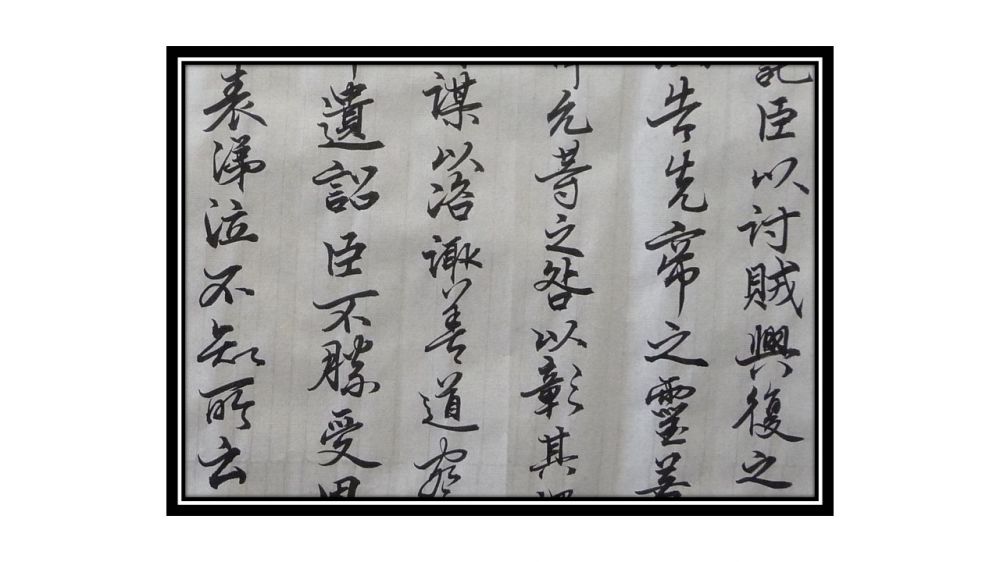 託臣以討賊興復之
告先帝之靈若
允等之咎以彰其
謀以咨諏善道察
遺詔臣不勝受恩
表涕泣不知所云